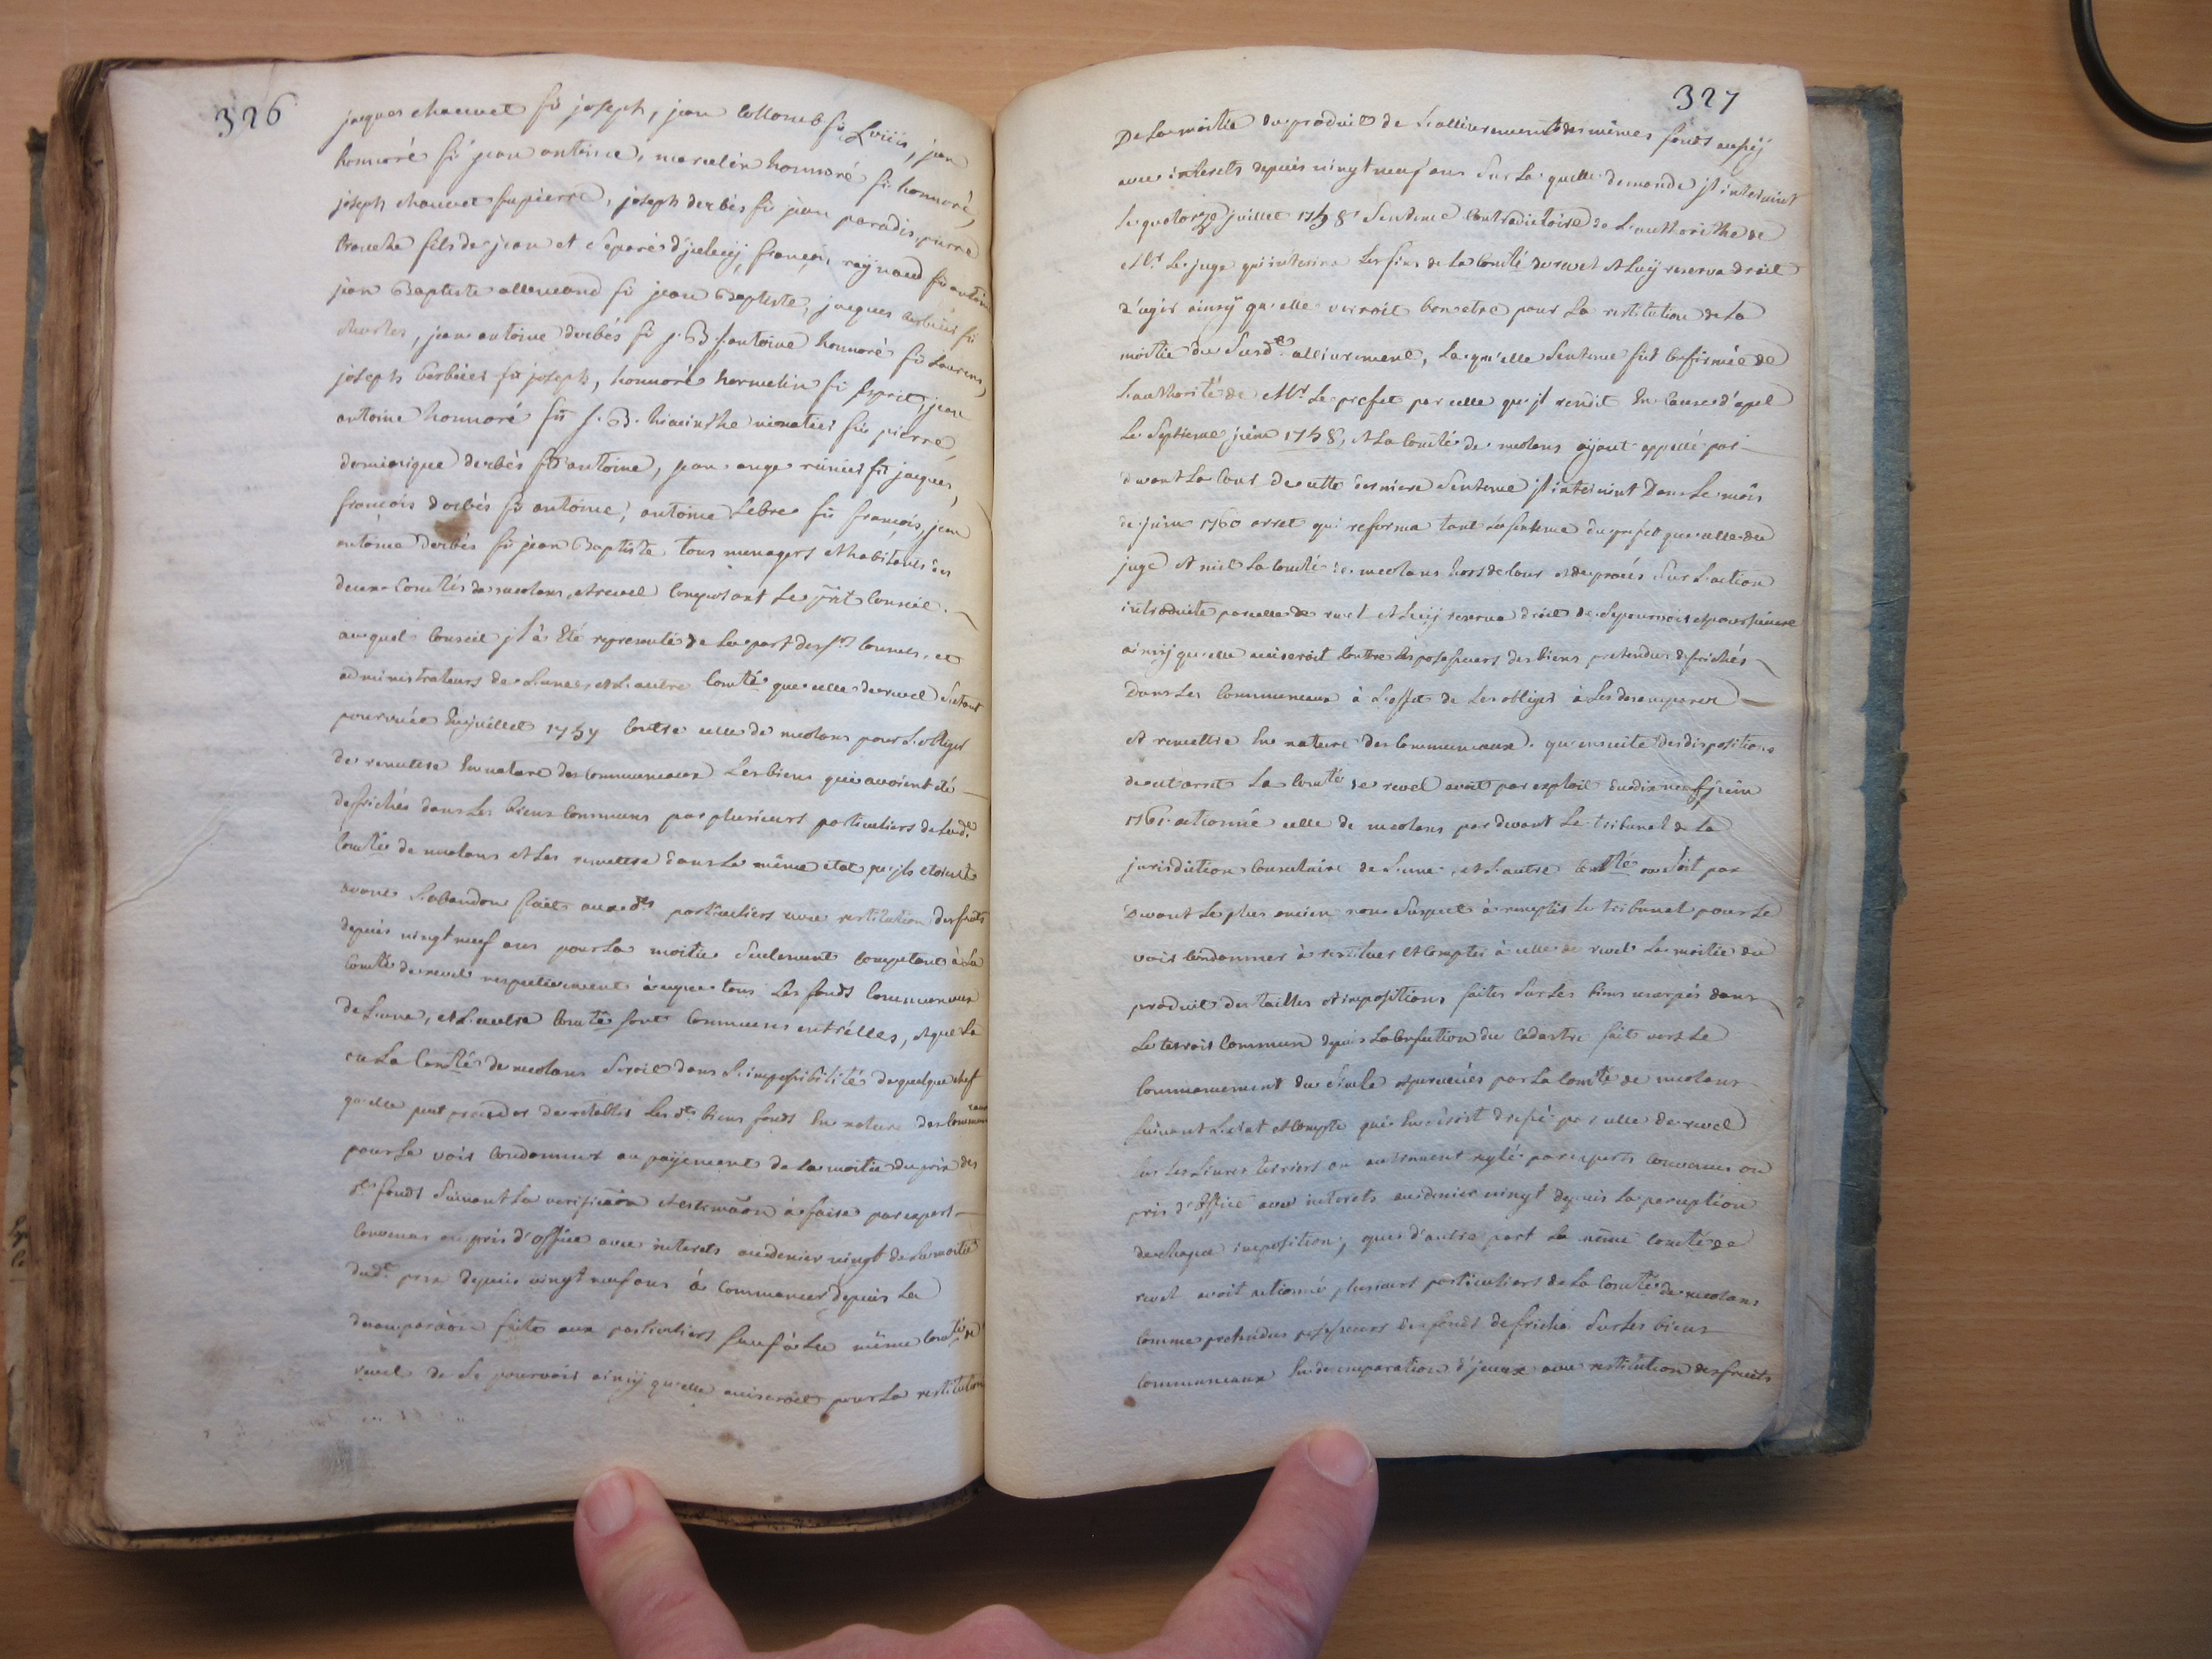 326
jacques chauvet fû joseph, jean collomb fû Loüis, jean
honnoré fû jean antoine, marcelin honnoré fû honnoré,
joseph chauvet fu pierre, joseph derbés fû jean paradis, pierre
tronche fils de jean et séparé d'jceluÿ, françois raÿnaud fû antoine
jean Baptiste allemand fû jean Baptiste, jacques fû
charles, jean antoine derbés fû j. B. antoine honnoré fû Laurens,
joseph fû joseph, honnoré hermelin fû Esprit, jean
antoine honnoré fû j. B. hiacinthe fû pierre,
dominique derbés fû antoine, jean ange fû jacques,
françois derbés fû antoine, antoine Lebre fû françois, jean
antoine derbés fû jean Baptiste tous menagers et habitants des
deux Comtés de meolans, et revel Composant Le pnt Conseil.
auquel Conseil jl à Eté representé de La part des srs Consuls, et
administrateurs de L'une, et L'autre Comté que celle de revel s'etant
pourvuée En juillet 1757 Contre celle de meolans pour L'obliger
de remettre En nature des Communeaux Les biens qui avoient été
defrichés dans Les biens Communs par plusieurs particuliers de Lade
Comté de meolans et Les remettre dans Le même etat qu'jls etoient
avant L'abandon fait aux ds particuliers avec restitution des fruits
depuis vingt neuf ans pour La moitié seulement Competant à La
Comté de revel respectivement à ce que tous Les fonds Communaux
de L'une, et L'autre Comté sont Communs entr'elles, et que La
ou La Comté de meolans seroit dans L'impossibilité de quelque chef
qu'elle peut proceder de retablir Les ds biens fonds En nature des Communeaux
pour Le voir Condamner au paÿement de La moitié du prix des
ds fonds suivant La verificaõn et estimaõn à faire par expert
Convenus ou pris d'office avec interets au denier vingt de La moitié
dud prix depuis vingt neuf ans à Commancer depuis La
faite aux particuliers sauf à La même Comté de
revel de se pourvoir ainsÿ qu'elle aviseroit pour La restitution
327
De La moitié du produit de L'allivrement des mêmes fonds
avec interets depuis vingt neuf ans sur La quelle demande jl intervint
Le quatorze juillet 1758 sentence Contradictoire de L'authorithé de
Mr Le juge qui interina Les fins de La Comté de revel et Luÿ reserva droit
d'agir ainsÿ qu'elle verroit bon etre pour La restitution de La
moitié du susd allivrement, La qu'elle sentence fût Confirmée de
L'authorité de Mr Le prefet par celle qu'jl rendit En Cause d'apel
Le septieme juin 1758, et La Comté de meolans aÿant appellé par
devant La Cour de cette derniere sentence jl intervint Dans Le mois
de juin 1760 arret qui reforma tant La sentence du prefet que celle du
juge et mit La Comté de meolans hors de Cour et de procés sur L'action
introduite par celle de revel et Luÿ reserva droit de se pourvoir et poursuivre
ainsÿ qu'elle aviseroit Contre Les possesseurs des biens pretendus defrichés
Dans Les Communeaux à L'effet de Les obliger à Les desemparer
et remettre En nature des Communeaux. qu'ensuite des dispositions
de cet arret La Comté de revel avoit par exploit du dix neuf juin
1761 actionné celle de meolans par devant Le tribunal de La
jurisdiction Consulaire de L'une, et L'autre Comté ou soit par
Devant Le plus ancien non suspect à remplir Le tribunal pour Le
voir Condamner à restituer et Compter à celle de revel La moitié du
produit des tailles et impositions faites sur Les biens usurpés dans
Le terroir Commun depuis La Confection du Cadastre fait vers Le
Commancement du siecle et percuées par La Comté de meolans
suivant L'etat et Compte qui En seroit dressé par celle de revel
sur Les Livres terriers ou autrement reglé par experts Convenus ou
pris d'office avec interets au denier vingt depuis La perception
de chaque imposition, que d'autre part La même Comté de
revel avoit actionné plusieurs particuliers de La Comté de meolans
Comme pretendus possesseurs des fonds defriché sur Les biens
Communeaux En desemparation d'jceux avec restitution des fruits